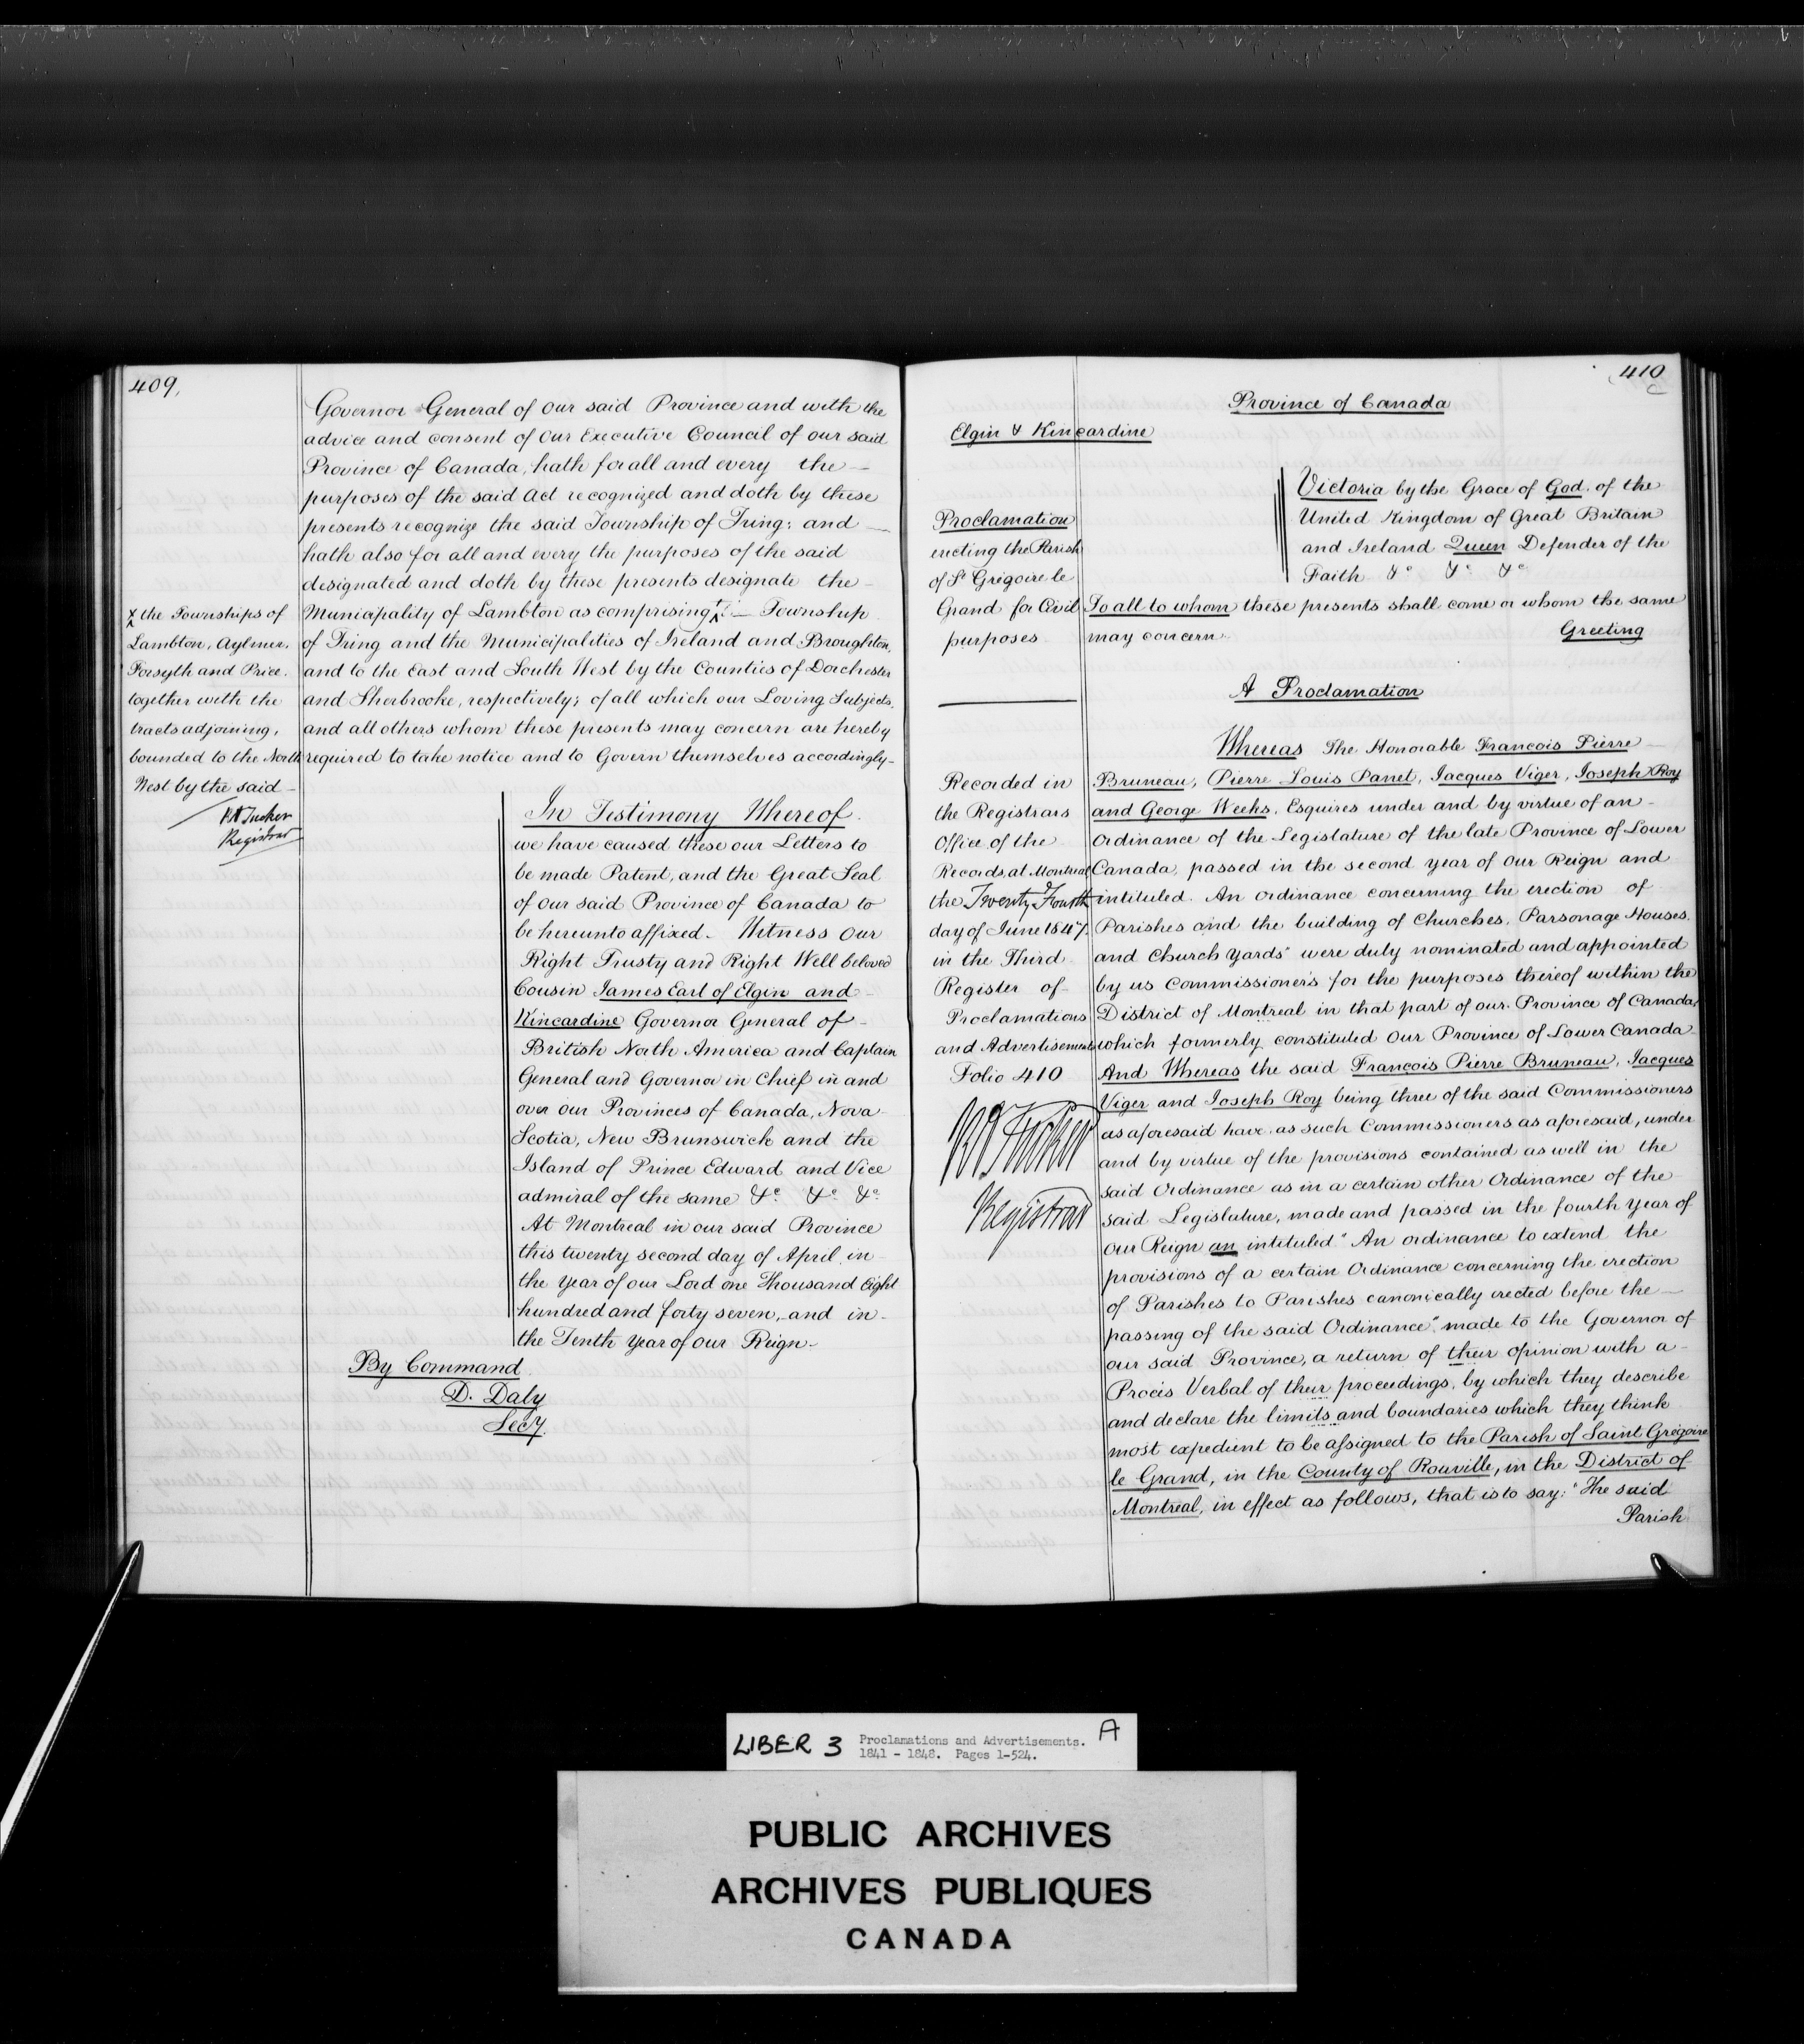 409.
Governor General of our said Province and with the
advice and consent of our Executive Council of our said
Province of Canada, hath for all and every the
purposes of the said Act recognized and doth by these
presents recognize the said Township of Tring: and
hath also for all and every the purposes of the said
designated and doth by these presents designate the
Municipality of Lambton as comprising x Township
of Tring and the Municipalities of Ireland and Broughton,
and to the East and South West by the Counties of Dorchester
and Sherbrooke, respectively; of all which our Loving Subjects,
and all others whom these presents may concern are hereby
required to take notice and to Govern themselves accordingly-
x the Townships of
Lambton, Aylmer,
Forsyth and Price.
together with the
tracts adjoining,
bounded to the North
West by the said
Tucker
Registrar
In Testimony Whereof.
we have caused these our Letters to
be made Patent, and the Great Seal
of our said Province of Canada to
be hereunto affixed. Witness Our
Right Trusty and Right Well beloved
Cousin James Earl of Elgin and
Kincardine Governor General of
British North America and Captain
General and Governor in Chief in and
over our Provinces of Canada, Nova
Scotia, New Brunswick and the
Island of Prince Edward and Vice
admiral of the same &c &c &c
At Montreal in our said Province
this twenty second day of April in
the Year of our Lord one Thousand Eight
hundred and forty seven, and in
the Tenth Year of our Reign-
By Command
D. Daly
Secy.
410
Province of Canada
Elgin & Kincardine
Victoria by the Grace of God. of the
United Kingdom of Great Britain
and Ireland Queen Defender of the
Faith &c &c &c
Proclamation
erecting the Parish
of St Grégoire le
Grand for Civil
purposes
To all to whom these presents shall come or whom the same
may concern.
Greeting
A Proclamation
Recorded in
the Registrars
Office of the
Records, at Montreal
the Twenty Fourth
day of June 1847.
in the Third
Register of
Proclamations
and Advertisements
Folio 410
Tucker
Registrar
Whereas The Honorable Francois Pierre
Bruneau, Pierre Louis Panet, Jacques Viger, Joseph Roy
and George Weeks, Esquires under and by virtue of an
Ordinance of the Legislature of the late Province of Lower
Canada, passed in the second year of Our Reign and
intituled. An Ordinance concerning the erection of
Parishes and the building of Churches, Parsonage Houses.
and Church Yards" were duly nominated and appointed
by us Commissioners for the purposes thereof within the
District of Montreal in that part of our Province of Canada,
which formerly constituted Our Province of Lower Canada
And Whereas the said Francois Pierre Bruneau, Jacques
Viger and Joseph Roy being three of the said Commissioners
as aforesaid have, as such Commissioners as aforesaid, under
and by virtue of the provisions contained as well in the
said Ordinance as in a certain other Ordinance of the
said Legislature, made and passed in the fourth Year of
our Reign an intituled "An ordinance to extend the
provisions of a certain Ordinance concerning the erection
of Parishes to Parishes canonically erected before the
passing of the said Ordinance," made to the Governor of
our said Province, a return of their opinion with a
Procès Verbal of their proceedings, by which they describe
and declare the limits and boundaries which they think
most expedient to be assigned to the Parish of Saint Gregoire
le Grand, in the County of Rouville, in the District of
Montreal, in effect as follows, that is to say: "The said
Parish
LIBER 3 Proclamations and Advertisements. A
1841 - 1848. Pages 1-524.
PUBLIC ARCHIVES
ARCHIVES PUBLIQUES
CANADA